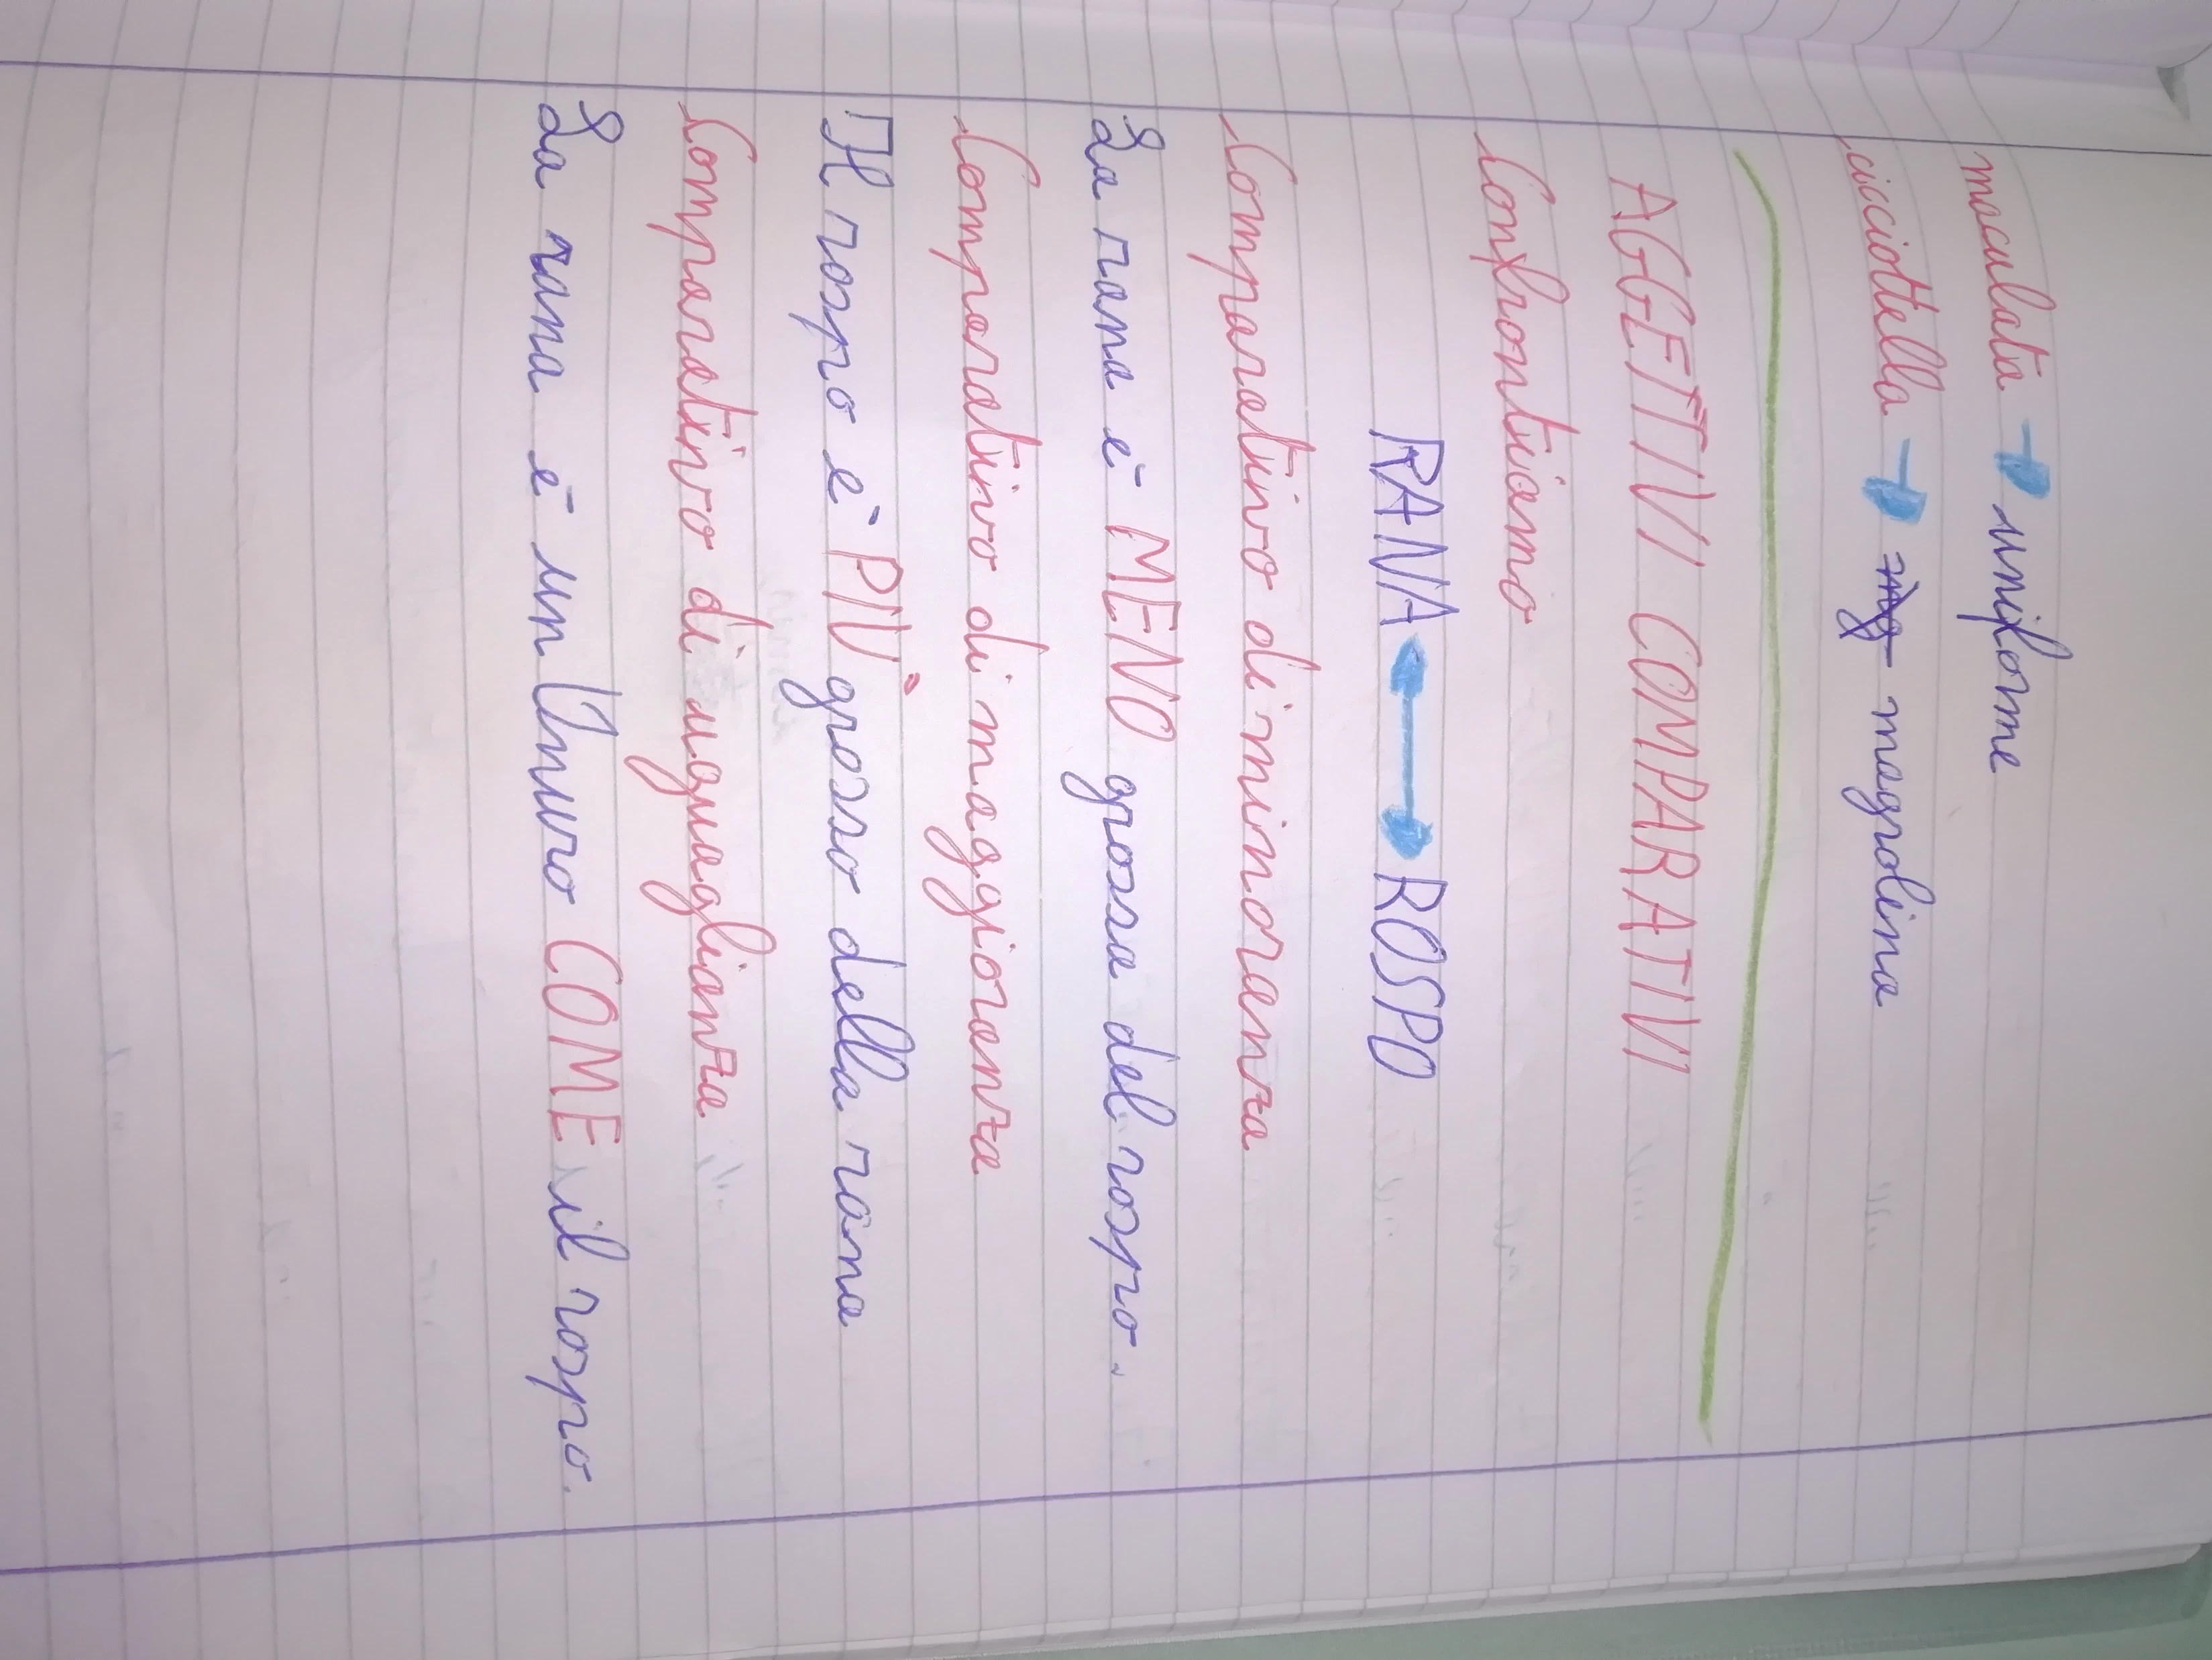 maculata → uniforme
cicciottella → magrolina
AGGETTIVI COMPARATIVI
Confrontiamo
RANA ↔ ROSPO
Comparativo di minoranza
La rana è MENO grossa del rospo.
Comparativo di maggioranza
Il rospo è PIÙ grosso della rana
Comparativo di uguaglianza
La rana è un Anuro COME il rospo.